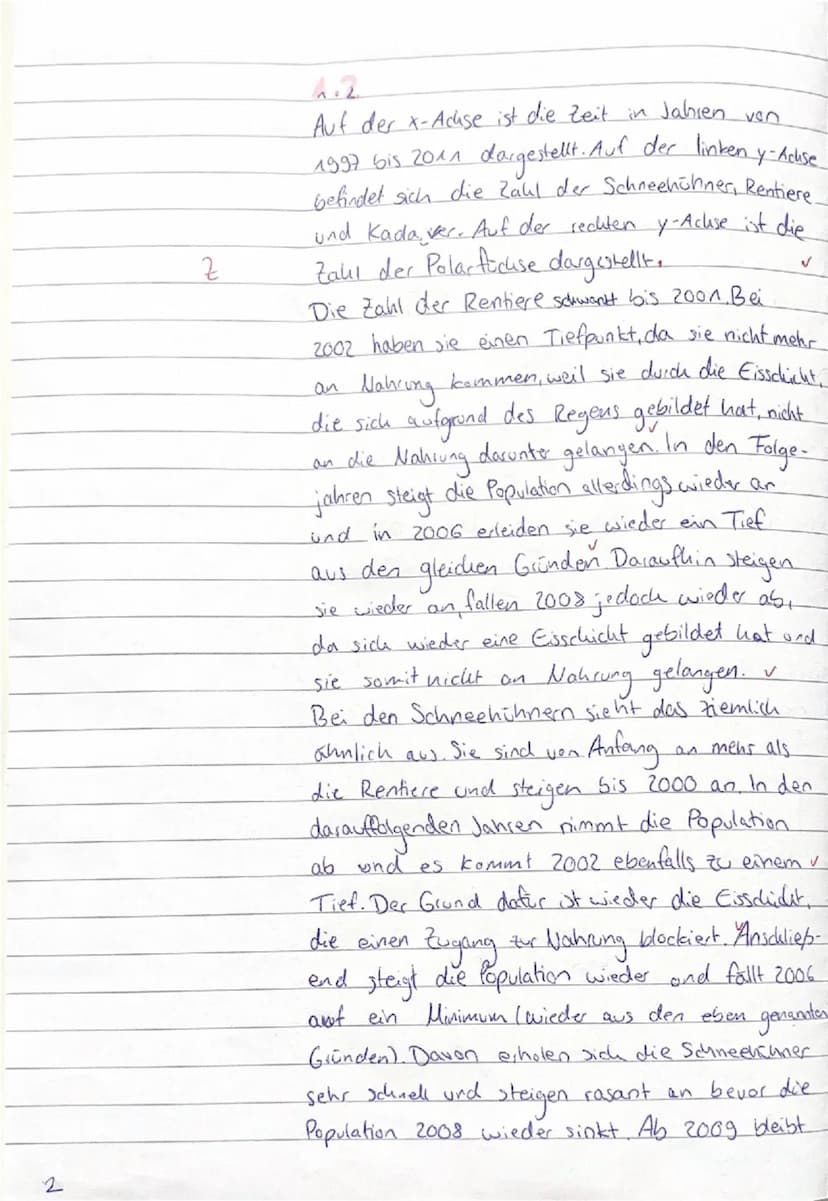 1.2
Auf der x-Achse ist die Zeit in Jahren von
1997 bis 2011 dargestellt. Auf der linken y-Achse
befindet sich die Zahl der Schneehühner, Rentiere
und Kadaver. Auf der rechten y-Achse ist die
Z Zahl der Polarfüchse dargestellt. ✓
Die Zahl der Rentiere schwankt bis 2001. Bei
2002 haben sie einen Tiefpunkt, da sie nicht mehr
an Nahrung kommen, weil sie durch die Eisschicht,
die sich aufgrund des Regens gebildet hat, nicht
an die Nahrung darunter gelangen. ✓ In den Folge-
jahren steigt die Population allerdings wieder an
und in 2006 erleiden sie wieder ein Tief
aus den gleichen Gründen. ✓ Daraufhin steigen
sie wieder an, fallen 2008 jedoch wieder ab,
da sich wieder eine Eisschicht gebildet hat und
sie somit nicht an Nahrung gelangen. ✓
Bei den Schneehühnern sieht das ziemlich
ähnlich aus. Sie sind von Anfang an mehr als
die Rentiere und steigen bis 2000 an. In den
darauffolgenden Jahren nimmt die Population
ab und es kommt 2002 ebenfalls zu einem ✓
Tief. Der Grund dafür ist wieder die Eisschicht,
die einen Zugang zur Nahrung blockiert. ✓ Anschließ-
end steigt die Population wieder und fällt 2006
auf ein Minimum (wieder aus den eben genannten
Gründen). Davon erholen sich die Schneehühner
sehr schnell und steigen rasant an bevor die
Population 2008 wieder sinkt. Ab 2009 bleibt
2